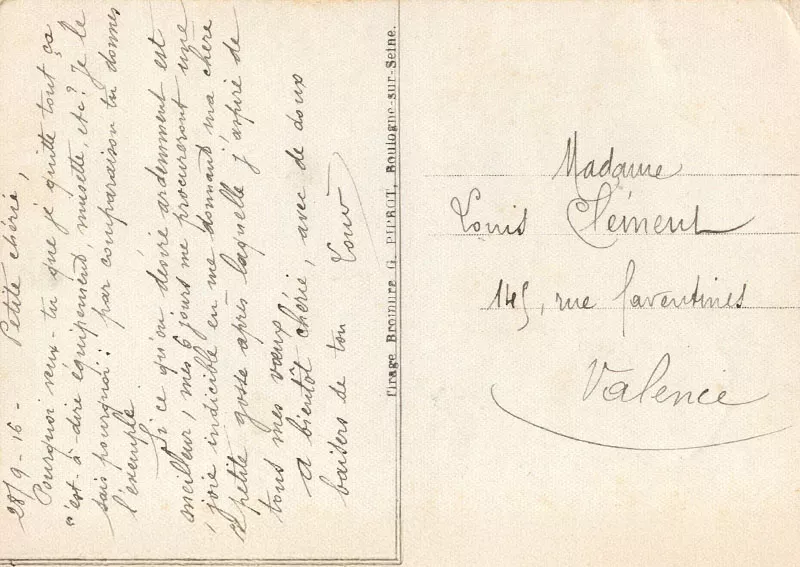 28/9-16- Petite chérie,
Pourquoi veux-tu que je quitte tout ça
c'est-à-dire équipement, musette, etc? Je le
sais pourquoi: par comparaison tu donnes
l'exemple
Si ce qu'on désire ardemment est
meilleur, mes 6 jours me procureront une
joie indicible en me donnant ma chère
petite gosse après laquelle j'aspire de
tous mes vœux
A bientôt chérie, avec de doux
baisers de ton Louis
Tirage Bromure G. PIPROT, Boulogne-sur-Seine.
Madame
Louis Clément
145, rue Faventines
Valence